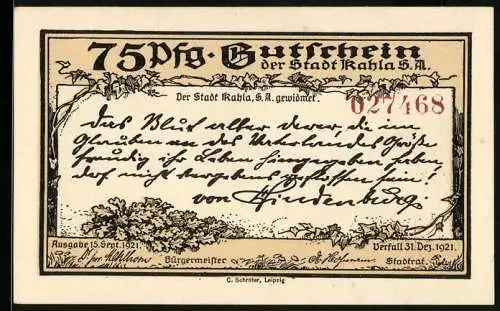 75 Pfg. Gutschein
der Stadt Kahla S.A.
Der Stadt Kahla, S.A. gewidmet.
027468
Das Blut aller derer, die im
Glauben an des Vaterlandes Größe
freudig ihr Leben hingegeben haben,
darf nicht vergebens geflossen sein!
von Hindenburg
Ausgabe 15. Sept. 1921.
Verfall 31. Dez. 1921.
Bürgermeister
Stadtrat.
C. Schröter, Leipzig